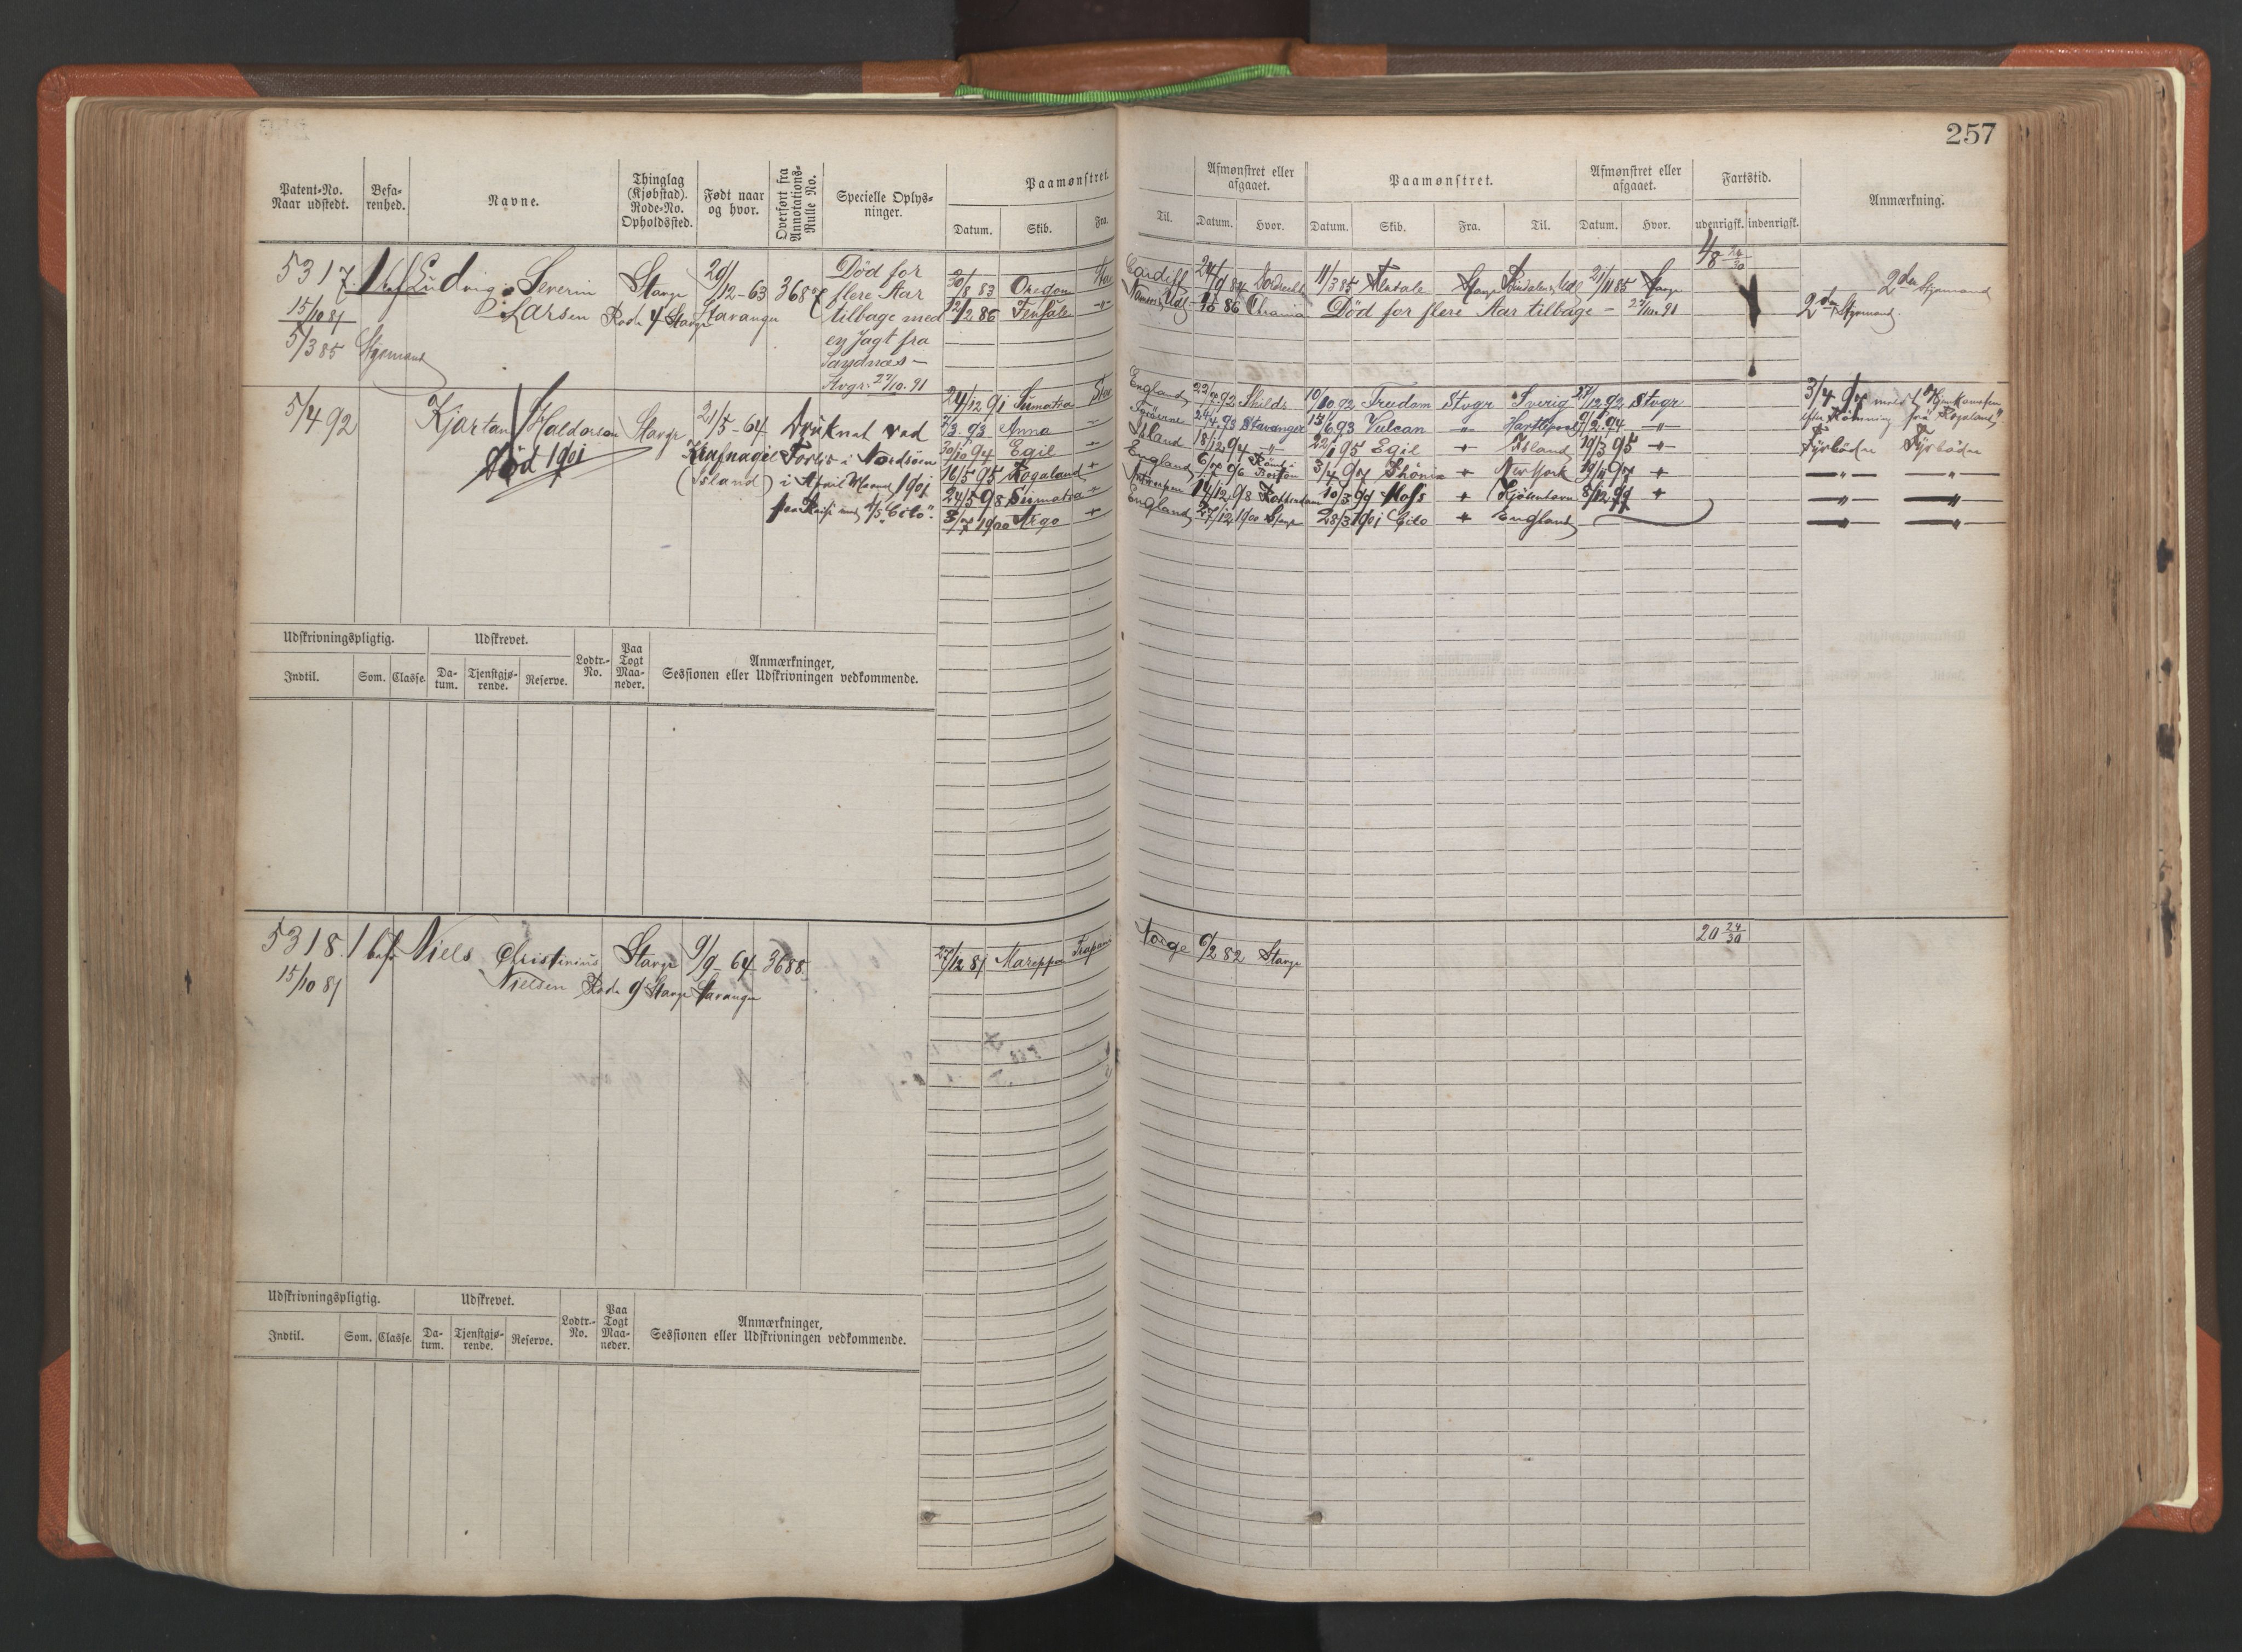 257
Patent-No.
Naar udstedt.
Befa-
renhed.
Navne.
Thinglag
(Kjøbstad).
Rode-No.
Opholdssted.
Født naar
og hvor.
Overført fra
Annotations-
Rulle No.
Specielle Oplys-
ninger.
Paamønstret.
Datum. Skib. Fra.
Til.
Afmønstret eller
afgaaet.
Datum. Hvor.
Paamønstret.
Datum. Skib. Fra. Til.
Afmønstret eller
afgaaet.
Datum. Hvor.
Fartstid.
udenrigsk. indenrigsk.
Anmærkning.
5317 Ludvig Severin
Larsen
15/10 81
5/3 85 Styrmand
Stavgr
Rode 4 Stavgr
29/12-63
Stavanger
3687
Død for
flere Aar
tilbage med
en Jagt fra
Sandnæs-
Stvgr: 27/10. 91
30/8 83 Oregon Stav
12/2 86
Cardiff 24/9 84
11/3 85 Stavgr 21/11 85 Stavgr
48 24/30
2den Styrmand
86 Chrania Død for flere Aar tilbage - 27/10. 91
2den Styrmand
5/4 92
Kjartan Haldorson
Død 1901
Stavgr
21/5-64
Krafnagil
(Island)
Druknet ved
Forlis i Nordsøen
i April Maaned 1901
paa Reise med S/S "Cito".
24/12 91 Sumatra Stav
2/3 93 Anna -
30/10 94 Egil +
16/5 95 Rogaland +
24/5 98 Sumatra "
3/7 1900 Argo +
England 22/10 92 Shilds 10/10 92 Trudom Stvgr Sverig 27/12 92 Stvgr
Færøerne 24/4 93 Stavanger 15/6 93 Vulcan -"- Hartlepool 9/2 94 -"-
Island 18/12 94 -"- 22/1 95 Egil + Island 19/3 95 -"-
England 6/7 96 3/4 97 Phönix + New York 19/11 97 +
Antwerpen 14/12 98 Rotterdam 10/3 99 Moss + Kjöbenhavn 8/12 99 +
England 27/12 1900 Stavgr 28/3 1901 Cito + England
3/4 97
efter Rømning fra "Rogaland"
Fyrbøder Fyrbøder
-"- -"-
-"- -"-
-"- -"-
Udskrivningspligtig.
Indtil. Som. Classe.
Udskrevet.
Da-
tum.
Tjenstgjø-
rende.
Reserve.
Lodtr.-
No.
Paa
Togt
Maa-
neder.
Anmærkninger,
Sessionen eller Udskrivningen vedkommende.
5318. 1 bef Niels Christinius
Nielsen
15/10 81
Stavgr
Rode 9 Stavgr
9/9-64
Stavanger
3688
27/12 81 Trapani
Norge 6/2 82 Stavgr
20 24/30
Udskrivningspligtig.
Indtil. Som. Classe.
Udskrevet.
Da-
tum.
Tjenstgjø-
rende.
Reserve.
Lodtr.-
No.
Paa
Togt
Maa-
neder.
Anmærkninger,
Sessionen eller Udskrivningen vedkommende.